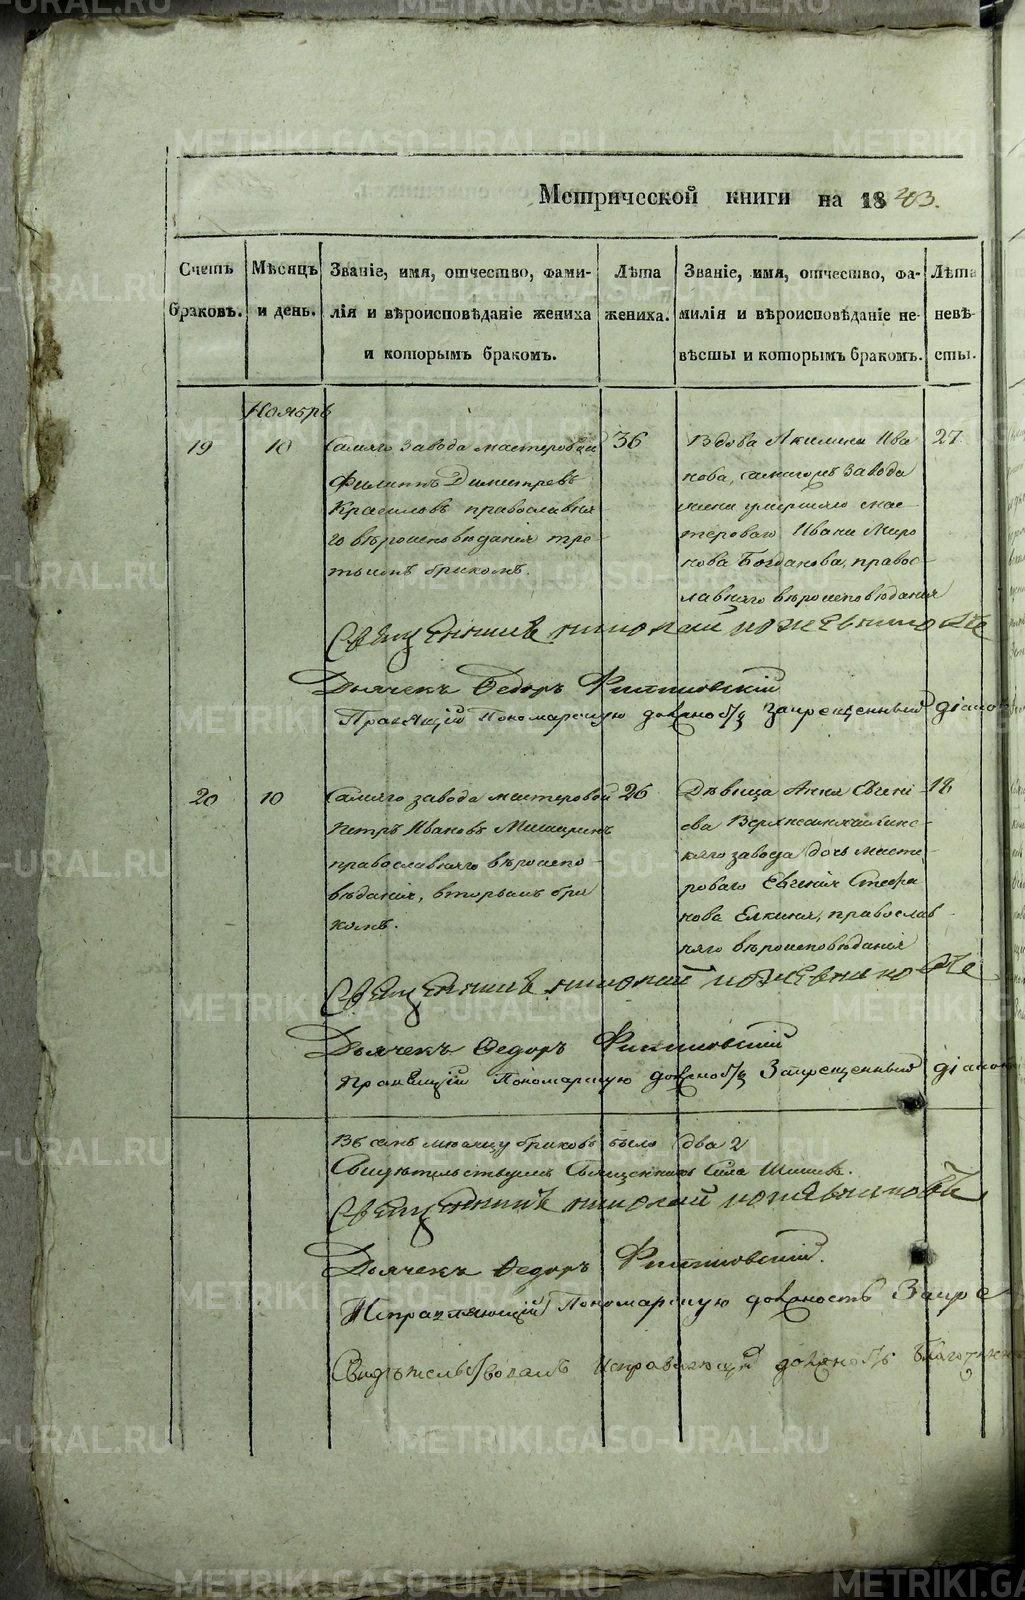 Метрической книги на 1843.
Счетъ браковъ.
Мѣсяцъ и день.
Званіе, имя, отчество, фами-
лія и вѣроисповѣданіе жениха
и которымъ бракомъ.
Лѣта жениха.
Званіе, имя, отчество, фа-
милія и вѣроисповѣданіе не-
вѣсты и которымъ бракомъ.
Лѣта невѣ-
сты.
Ноябрь
19
10
Самаго завода мастеровой
Филиппъ Димитревъ
Красиловъ православна
го вѣроисповѣданія тре-
тьимъ бракомъ.
36
Вдова Акилина Ива
нова, самагожъ завода
жена умершаго мас-
тероваго Ивана Миро
нова Богданова, право-
славнаго вѣроисповѣданія
27
Священникъ Николай
Дьячекъ Федоръ
Правящій Пономарскую должность запрещенный діакон
20
10
Самаго завода мастеровой
Петръ Ивановъ
православнаго вѣроиспо-
вѣданія, вторымъ бра
комъ.
26
Дѣвица Анна Евгені-
ева
каго завода дочь масте-
роваго Евгенія Стефа
нова Елкина, православ-
наго вѣроисповѣданія
18
Священникъ Николай
Дьячекъ Федоръ
Правящій Пономарскую должность Запрещенный діакон
Въ семъ мѣсяцу браковъ было два 2
Свидѣтельствуемъ Священникъ
Священникъ Николай
Дьячекъ Федоръ
Исправляющій Пономарскую должность Запре
Свидѣтельствовалъ Исправляющій должность
METRIKI.GASO-URAL.RU